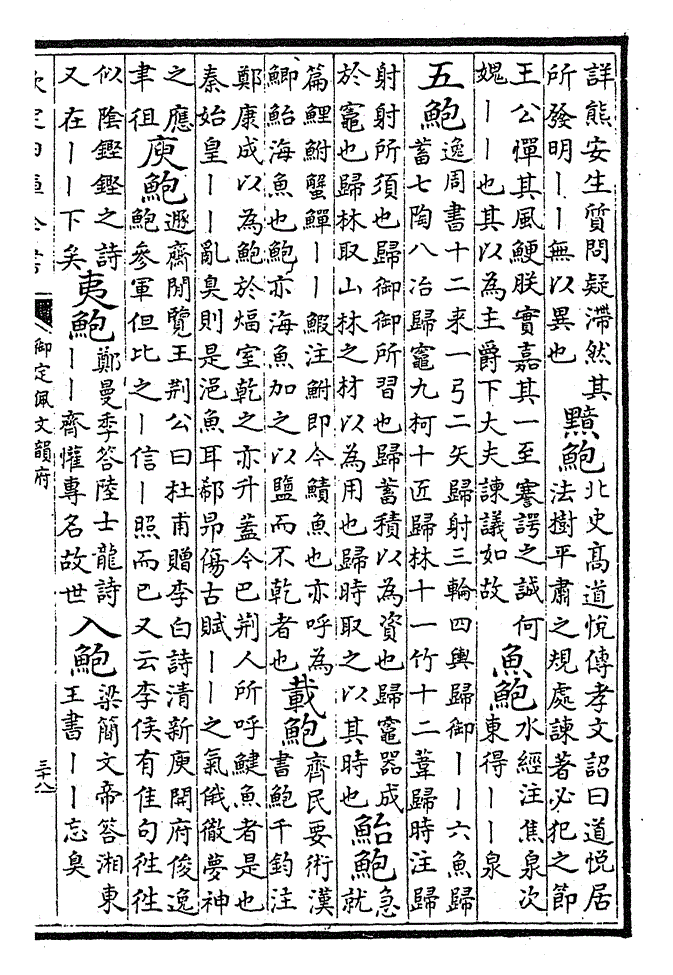 詳熊安生質問疑滯然其
所發明丨丨無以異也
黯鮑
北史高道悅傳孝文詔曰道悅居
法樹平肅之規處諫著必犯之節
王公憚其風鯁朕實嘉其一至謇諤之誠何
媿丨丨也其以為主爵下大夫諫議如故
魚鮑
水經注焦泉次
東得丨丨泉
五鮑
逸周書十二来一弓二矢歸射三輪四輿歸御丨丨六魚歸
蓄七陶八冶歸竈九柯十匠歸林十一竹十二葦歸時注歸
射射所須也歸御御所習也歸蓄積以為資也歸竈器成
於竈也歸林取山林之材以為用也歸時取之以其時也
鮐鮑
急
就
篇鯉鮒蟹鱓丨丨鰕注鮒即今鰿魚也亦呼為
鯽鮐海魚也鮑亦海魚加之以鹽而不乾者也
載鮑
齊民要術漢
書鮑千鈞注
鄭康成以為鮑於煏室乾之亦升蓋今巴荆人所呼鰎魚者是也
秦始皇丨丨亂臭則是浥魚耳郗昻傷古賦丨丨之氣俄徹夢神
之應
聿徂
庾鮑
遯齋閒覽王荆公曰杜甫贈李白詩清新庾開府俊逸
鮑參軍但比之丨信丨照而已又云李侯有佳句徃徃
似陰鏗鏗之詩
又在丨丨下矣
夷鮑
鄭曼季答陸士龍詩
丨丨齊懽專名故世
入鮑
梁簡文帝答湘東
王書丨丨忘臭
御定佩文韻府
三十八